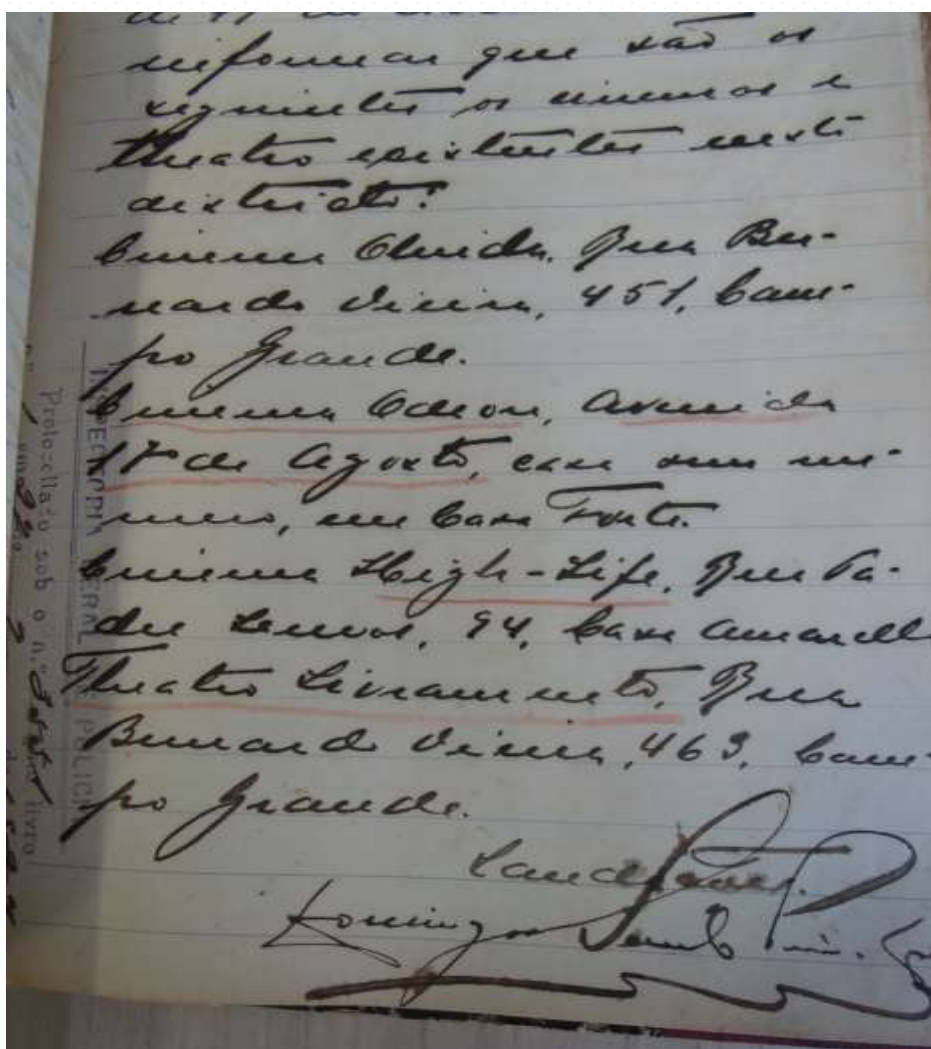 informar que são os
seguintes os cinemas e
theatro existentes neste
districto:
Cinema Olinda, Rua Ber-
nardo Vieira, 451, Cam-
po Grande.
Cinema Odeon, Avenida
17 de Agosto, casa sem nu-
mero, em Casa Forte.
Cinema High-Life, Rua Pa-
dre Lemos, 94, Casa Amarella
Theatro Livramento, Rua
Bernardo Vieira, 463, Cam-
po Grande.
Saudações.
Domingos
INSPECTORIA GERAL POLICIA
Protocollado sob o n.º livro